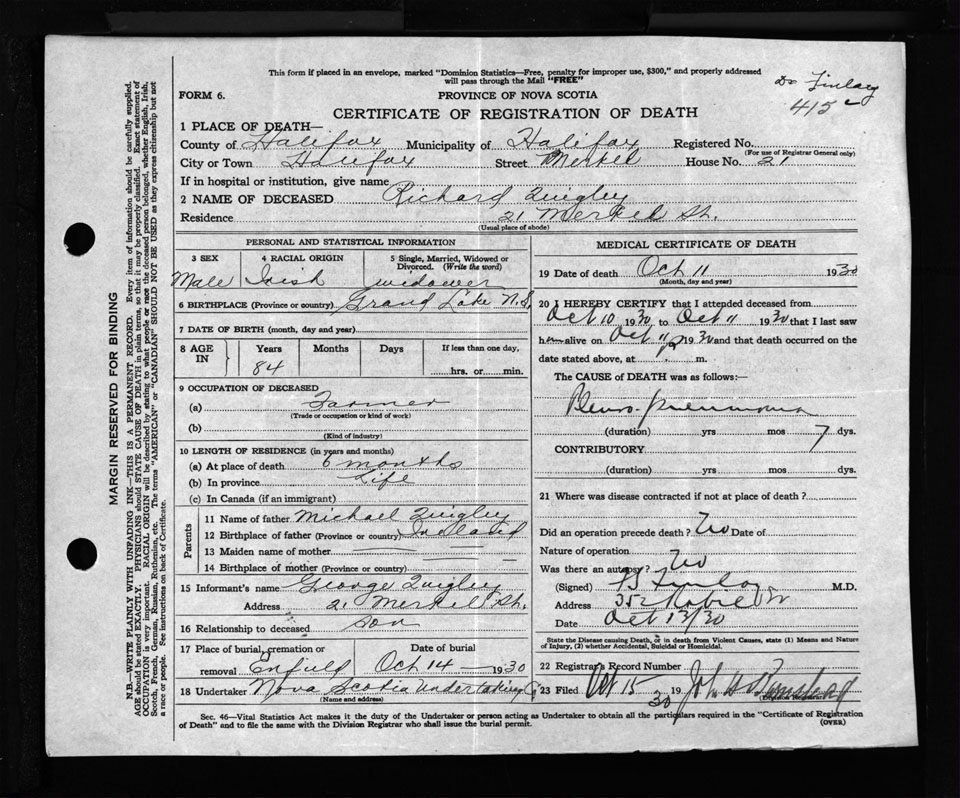 This form if placed in an envelope, marked "Dominion Statistics—Free, penalty for improper use, $300," and properly addressed
will pass through the Mail "FREE"
Dr Finlay
415
FORM 6.
PROVINCE OF NOVA SCOTIA
CERTIFICATE OF REGISTRATION OF DEATH
1 PLACE OF DEATH—
County of Halifax Municipality of Halifax Registered No.
(For use of Registrar General only)
City or Town Halifax Street Merkel House No. 21
If in hospital or institution, give name
2 NAME OF DECEASED Richard Quigley
Residence 21 Merkel St.
(Usual place of abode)
PERSONAL AND STATISTICAL INFORMATION
3 SEX 4 RACIAL ORIGIN 5 Single, Married, Widowed or
Divorced. (Write the word)
Male Irish widower
6 BIRTHPLACE (Province or country) Grand Lake N.S.
7 DATE OF BIRTH (month, day and year)
8 AGE IN Years Months Days If less than one day,
84 hrs. or min.
9 OCCUPATION OF DECEASED
(a) Farmer
(Trade or occupation or kind of work)
(b)
(Kind of industry)
10 LENGTH OF RESIDENCE (in years and months)
(a) At place of death 6 months
(b) In province Life
(c) In Canada (if an immigrant)
Parents
11 Name of father Michael Quigley
12 Birthplace of father (Province or country) Ireland
13 Maiden name of mother
14 Birthplace of mother (Province or country)
15 Informant's name George Quigley
Address 21 Merkel St.
16 Relationship to deceased son
17 Place of burial, cremation or Date of burial
removal Enfield Oct 14 1930
18 Undertaker Nova Scotia Undertaking Co
(Name and address)
MEDICAL CERTIFICATE OF DEATH
19 Date of death Oct 11 1930
(Month, day and year)
20 I HEREBY CERTIFY that I attended deceased from
Oct 10 1930 to Oct 11 1930 that I last saw
him alive on Oct 11 1930 and that death occurred on the
date stated above, at m.
The CAUSE of DEATH was as follows:—
Pleuro-pneumonia
(duration) yrs mos 7 dys.
CONTRIBUTORY
(duration) yrs mos dys.
21 Where was disease contracted if not at place of death?
Did an operation precede death? No Date of
Nature of operation
Was there an autopsy? No
(Signed) Finlay M.D.
Address 352 Robie St
Date Oct 13/30
State the Disease causing Death, or in death from Violent Causes, state (1) Means and Nature
of Injury, (2) whether Accidental, Suicidal or Homicidal.
22 Registrar's Record Number
23 Filed Oct 15 1930 John H
Sec. 46—Vital Statistics Act makes it the duty of the Undertaker or person acting as Undertaker to obtain all the particulars required in the "Certificate of Registration
of Death" and to file the same with the Division Registrar who shall issue the burial permit.
(OVER)
MARGIN RESERVED FOR BINDING
N.B.—WRITE PLAINLY WITH UNFADING INK—THIS IS A PERMANENT RECORD. Every item of information should be carefully supplied.
AGE should be stated EXACTLY. PHYSICIANS should STATE CAUSE OF DEATH in plain terms, so that it may be properly classified. Exact statement of
OCCUPATION is very important. RACIAL ORIGIN will be described by stating to what people or race the deceased person belonged, whether English, Irish,
Scotch, French, German, Russian, Ruthenian, etc. The terms "AMERICAN" or "CANADIAN" SHOULD NOT BE USED as they express citizenship but not
a race or people. See instructions on back of Certificate.